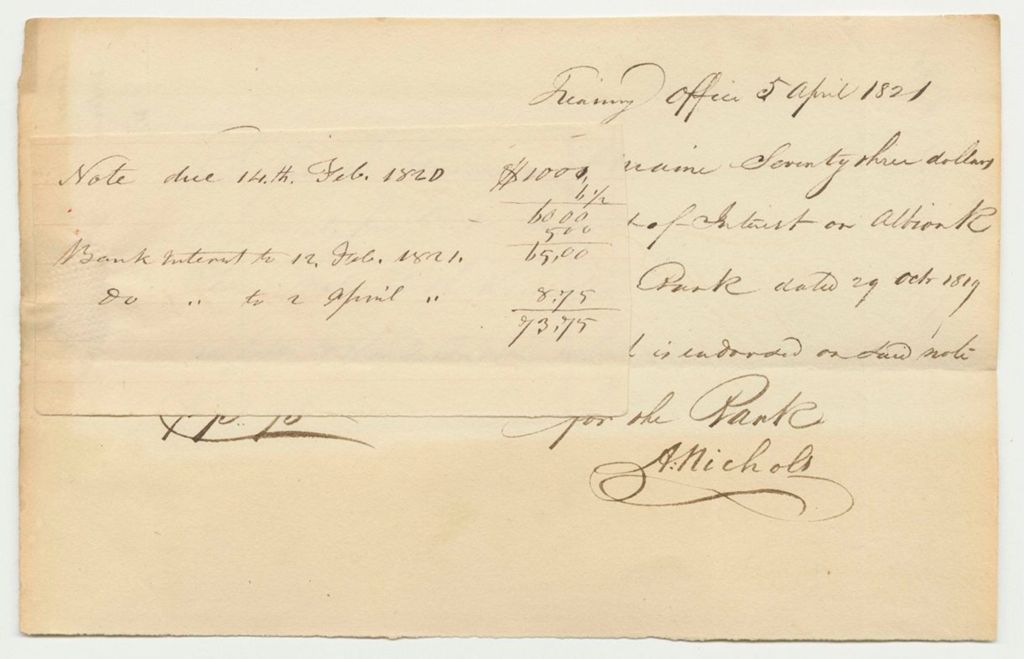 Treasury Office 5 April 1821
Seventy three dollars
of Interest on Albion K
Bank dated 29 Octr 1819
is endorsed on said note
for the Bank
A. Nichols
Note due 14th. Feb. 1820 $1000,
6 1/2
6000
500
65,00
Bank Interest to 12, Feb. 1821.
do " to 2 April " 8.75
73.75